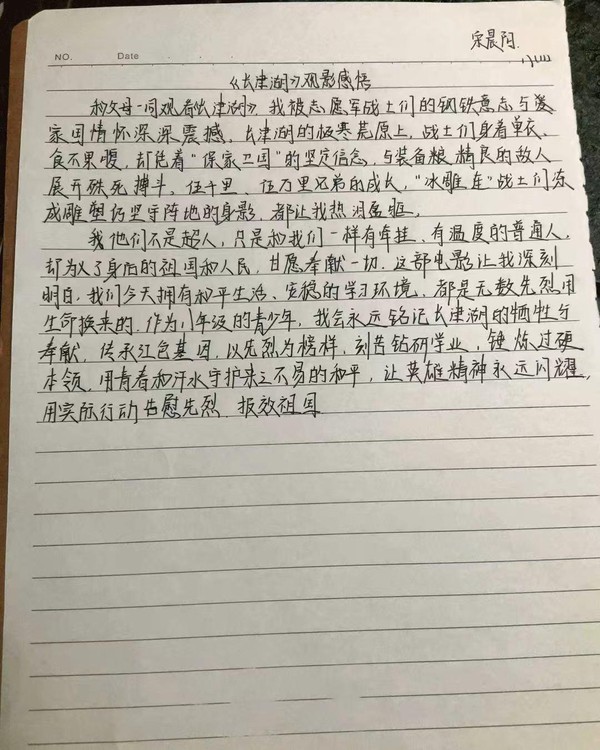 宋晨阳
NO.
Date
《长津湖》观影感悟
和父母一同观看《长津湖》，我被志愿军战士们的钢铁意志与爱
家国情怀深深震撼。长津湖的极寒荒原上，战士们身着单衣、
食不果腹，却凭着“保家卫国”的坚定信念，与装备粮精良的敌人
展开殊死搏斗。伍千里、伍万里兄弟的成长，“冰雕连”战士们冻
成雕塑仍坚守阵地的身影，都让我热泪盈眶。
我他们不是超人，只是和我们一样有牵挂、有温度的普通人，
却为了身后的祖国和人民，甘愿奉献一切。这部电影让我深刻
明白，我们今天拥有和平生活、安稳的学习环境，都是无数先烈用
生命换来的。作为八年级的青少年，我会永远铭记长津湖的牺牲与
奉献，传承红色基因，以先烈为榜样，刻苦钻研学业，锤炼过硬
本领，用青春和汗水守护来之不易的和平，让英雄精神永远闪耀，
用实际行动告慰先烈、报效祖国